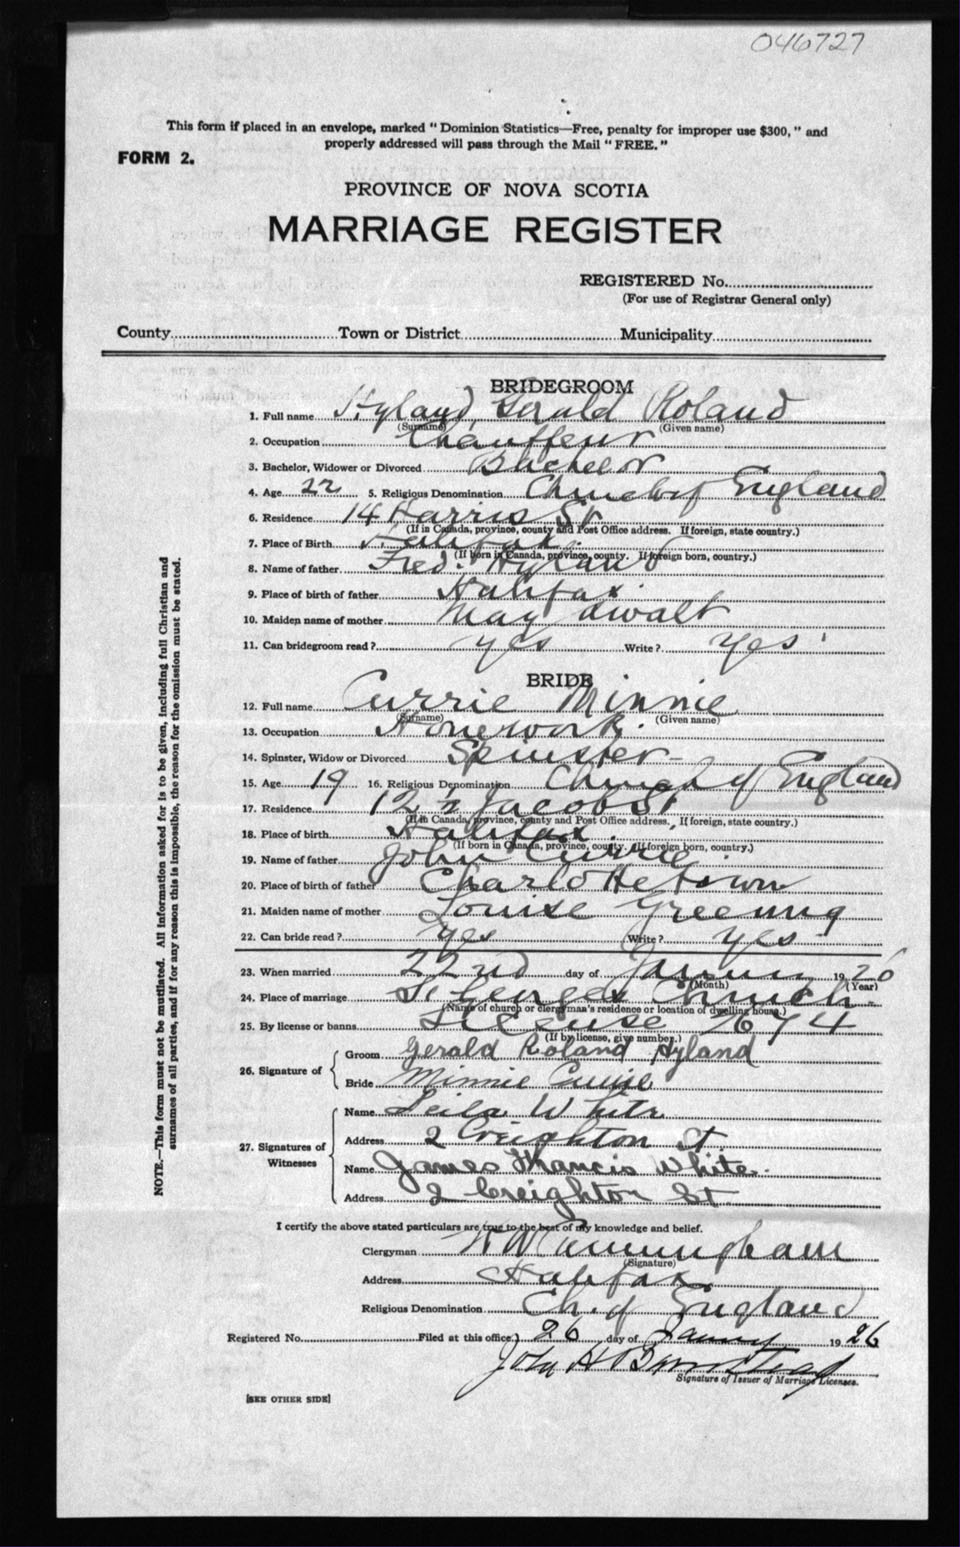 046727
This form if placed in an envelope, marked "Dominion Statistics—Free, penalty for improper use $300," and
properly addressed will pass through the Mail "FREE."
FORM 2.
PROVINCE OF NOVA SCOTIA
MARRIAGE REGISTER
REGISTERED No.
(For use of Registrar General only)
County Town or District Municipality
BRIDEGROOM
1. Full name Hyland, Gerald Roland
(Surname) (Given name)
2. Occupation Chauffeur
3. Bachelor, Widower or Divorced Bachelor
4. Age 22 5. Religious Denomination Church of England
6. Residence 14 Harris St
(If in Canada, province, county and Post Office address. If foreign, state country.)
7. Place of Birth Halifax.
(If born in Canada, province, county. If foreign born, country.)
8. Name of father Fred. Hyland
9. Place of birth of father Halifax.
10. Maiden name of mother May
11. Can bridegroom read? yes Write? yes
BRIDE
12. Full name Currie Minnie
(Surname) (Given name)
13. Occupation Housework.
14. Spinster, Widow or Divorced Spinster -
15. Age 19 16. Religious Denomination Church of England
17. Residence 12 Jacob St
(If in Canada, province, county and Post Office address, If foreign, state country.)
18. Place of birth Halifax.
(If born in Canada, province, county. If foreign born, country.)
19. Name of father John Currie.
20. Place of birth of father Charlottetown
21. Maiden name of mother Louise Greening
22. Can bride read? yes Write? yes
23. When married 22nd day of January 1926
(Month) (Year)
24. Place of marriage St. Georges Church.
(Name of church or clergyman's residence or location of dwelling house.)
25. By license or banns License 7674
(If by license, give number.)
26. Signature of
Groom Gerald Roland Hyland
Bride Minnie Currie
27. Signatures of Witnesses
Name Leila White
Address 2 Creighton St
Name James Francis White.
Address 2 Creighton St
I certify the above stated particulars are true to the best of my knowledge and belief.
Clergyman Cunningham
(Signature)
Address Halifax
Religious Denomination Ch. of England
Registered No. Filed at this office, 26 day of January 1926
John H Barnstead
Signature of Issuer of Marriage Licenses.
[SEE OTHER SIDE]
NOTE.—This form must not be mutilated. All information asked for is to be given, including full Christian and
surnames of all parties, and if for any reason this is impossible, the reason for the omission must be stated.